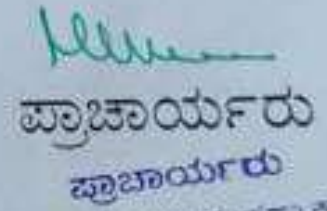 ಪ್ರಾಚಾರ್ಯರು
ಪ್ರಾಚಾರ್ಯರು